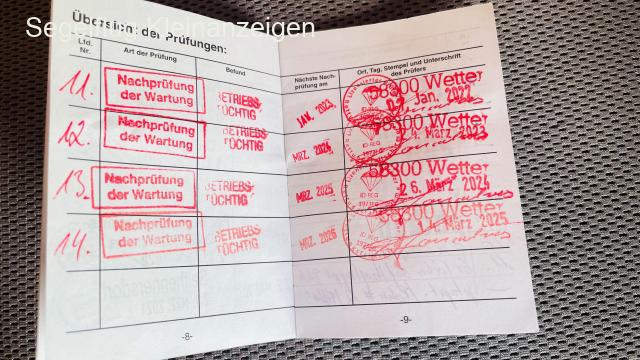 Segelflug Kleinanzeigen
Übersicht der Prüfungen:
Lfd. Nr.
Art der Prüfung
Befund
Nächste Nachprüfung am
Ort, Tag, Stempel und Unterschrift des Prüfers
11.
Nachprüfung
der Wartung
BETRIEBS-
TÜCHTIG
JAN. 2023
58300 Wetter
Jan. 2022
12.
Nachprüfung
der Wartung
BETRIEBS-
TÜCHTIG
MRZ. 2024
58300 Wetter
März 2023
13.
Nachprüfung
der Wartung
BETRIEBS-
TÜCHTIG
MRZ. 2025
58300 Wetter
26. März 2024
14.
Nachprüfung
der Wartung
BETRIEBS-
TÜCHTIG
MRZ. 2026
58300 Wetter
14. März 2025
-8-
-9-